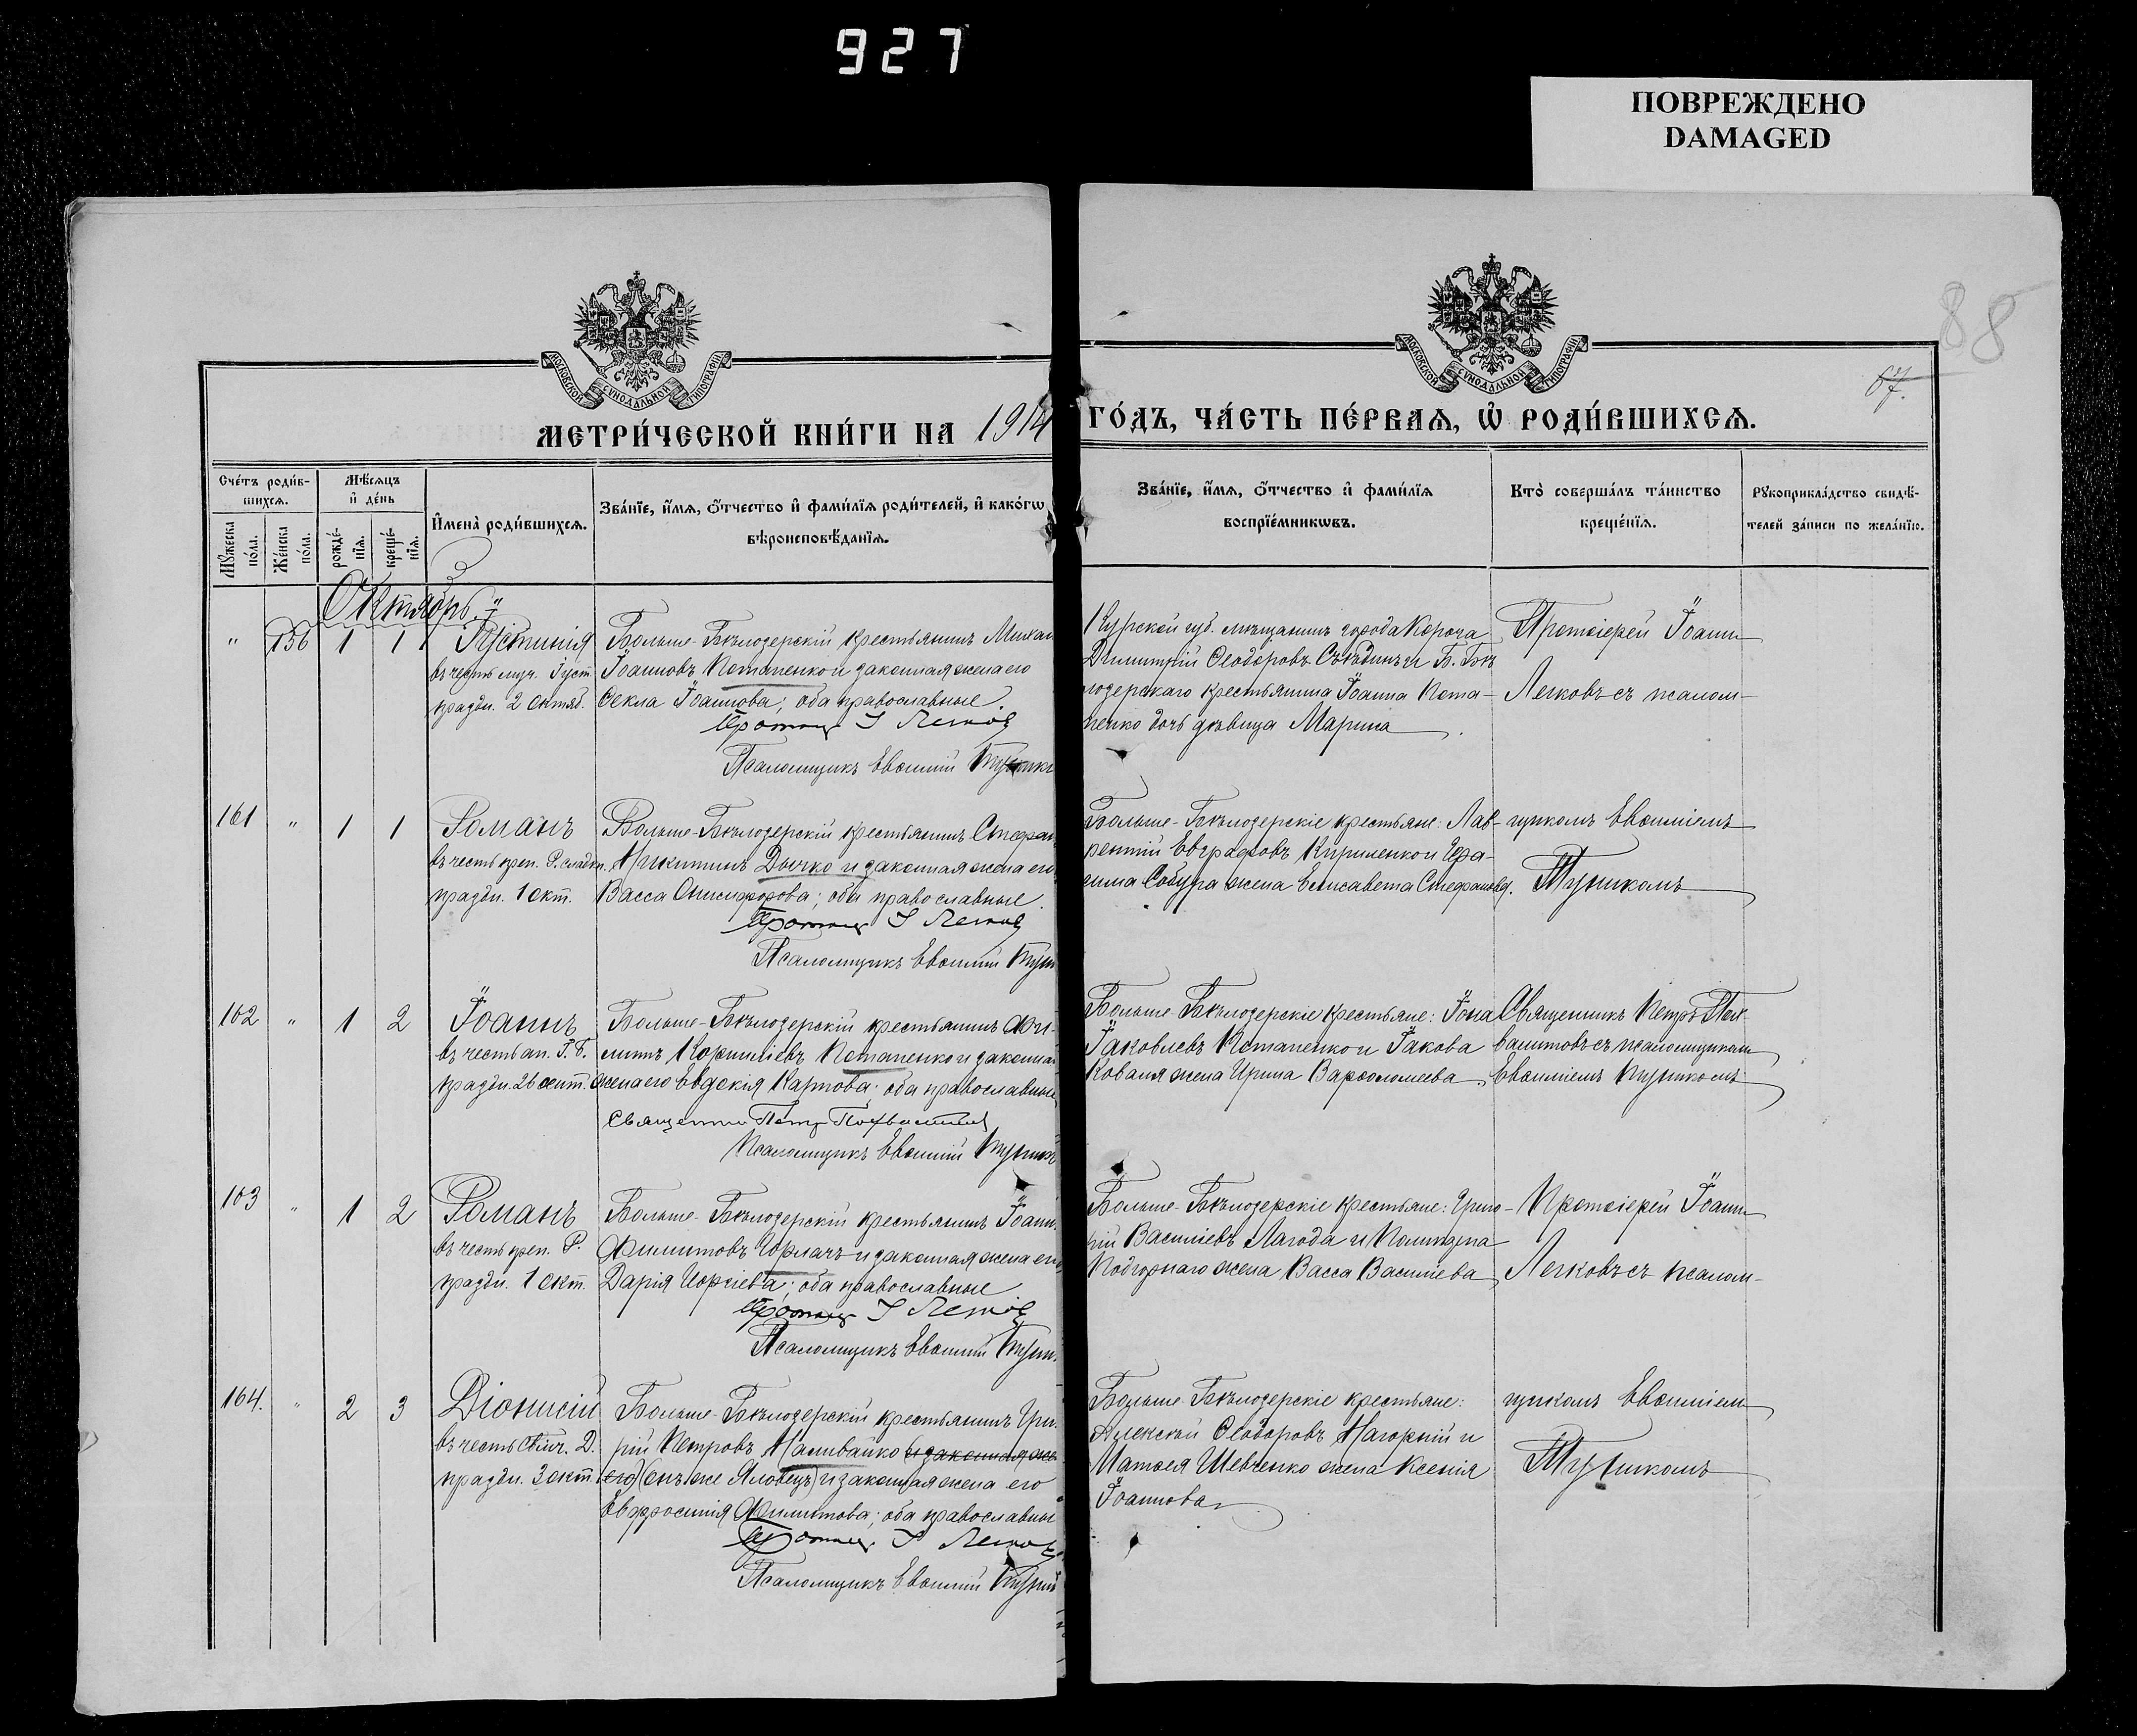 927
ПОВРЕЖДЕНО
DAMAGED
88
67.
МОСКОВСКОЙ СѴНОДАЛЬНОЙ ТИПОГРАФІИ
МОСКОВСКОЙ СѴНОДАЛЬНОЙ ТИПОГРАФІИ
МЕТРИ́ЧЕСКОЙ КНИ́ГИ НА 1914 ГО́ДЪ, ЧА́СТЬ ПЕ́РВАѦ, Ѡ҆ РОДИ́ВШИХСѦ.
Сче́тъ роди́в-
шихсѧ.
Мꙋ́жеска
по́ла.
Же́нска
по́ла.
Мѣ́сѧцъ
и҆ де́нь
рожде́-
нїѧ.
креще́-
нїѧ.
И҆мена̀ роди́вшихсѧ.
Зва́нїе, и҆́мѧ, ѻ҆́тчество и҆ фами́лїѧ роди́телей, и҆ како́гѡ
вѣроисповѣ́данїѧ.
Зва́нїе, и҆́мѧ, ѻ҆́тчество и҆ фами́лїѧ
воспрїе́мникѡвъ.
Кто̀ соверша́лъ та́инство
креще́нїѧ.
Рꙋкоприкла́дство свидѣ́-
телей за́писи по жела́нїю.
Октябрь
" 156 1 1
Іустинія
въ честь муч. Іуст.
праздн. 2 октяб.
Больше-Бѣлозерскій крестьянинъ Михаи
Іоанновъ Потапенко и законная жена его
Ѳекла Іоаннова; оба православные.
Протоіер. І Легков
Псаломщикъ Евѳимій
Курской губ. мѣщанинъ города Короча
Димитрій Ѳеодоровъ и Б. Бѣ
лозерскаго крестьянина Іоанна Пота-
пенко дочь дѣвица Марина.
Протоіерей Іоанн
Легковъ съ псалом-
161 " 1 1
Романъ
въ честь преп. Р. сладкп.
праздн. 1 окт.
Больше-Бѣлозерскій крестьянинъ Стефан
Никитинъ Дычко и законная жена его
Васса Онисифорова; оба православные.
Протоіер. І Легков
Псаломщикъ Евѳимій
Больше-Бѣлозерскіе крестьяне: Лав-
рентій Евграфовъ Кириленко и Гера-
сима Собура жена Елисавета Стефановa.
щикомъ Евѳиміемъ
162 " 1 2
Іоаннъ
въ честь ап. І. Б.
праздн. 26 сент.
Больше-Бѣлозерскій крестьянинъ Фи-
липпъ Корниліевъ Потапенко и законна
жена его Евдокія Карпова; оба православные
Священник Петр Похвалитов
Псаломщикъ Евѳимій
Больше-Бѣлозерскіе крестьяне: Іона
Іаковлевъ Потапенко и Іакова
Коваля жена Ирина Варѳоломеева
Священникъ Петръ Пох-
валитовъ съ псаломщиком
Евѳиміемъ
163 " 1 2
Романъ
въ честь преп. Р.
праздн. 1 окт.
Больше-Бѣлозерскій крестьянинъ Іоанн
Филипповъ Горлачъ и законная жена его
Дарія Георгіева; оба православные
Протоіер. І Легков
Псаломщикъ Евѳимій
Больше-Бѣлозерскіе крестьяне: Григо-
рій Василіевъ Лагода и
Подгорнаго жена Васса Василіева
Протоіерей Іоанн
Легковъ съ псалом-
164. " 2 3
Діонисій
въ честь свмч. Д.
праздн. 3 окт.
Больше-Бѣлозерскій крестьянинъ Гри-
рій Петровъ Наливайко и законная же
его (онъ же Яловецъ) и законная жена его
Евфросинія Филиппова; оба православны
Протоіер. І Легков
Псаломщикъ Евѳимій
Больше-Бѣлозерскіе крестьяне:
Алексѣй Ѳеодоровъ Нагорній и
Матѳея Шевченко жена Ксенія
Іоаннова
щикомъ Евѳиміем